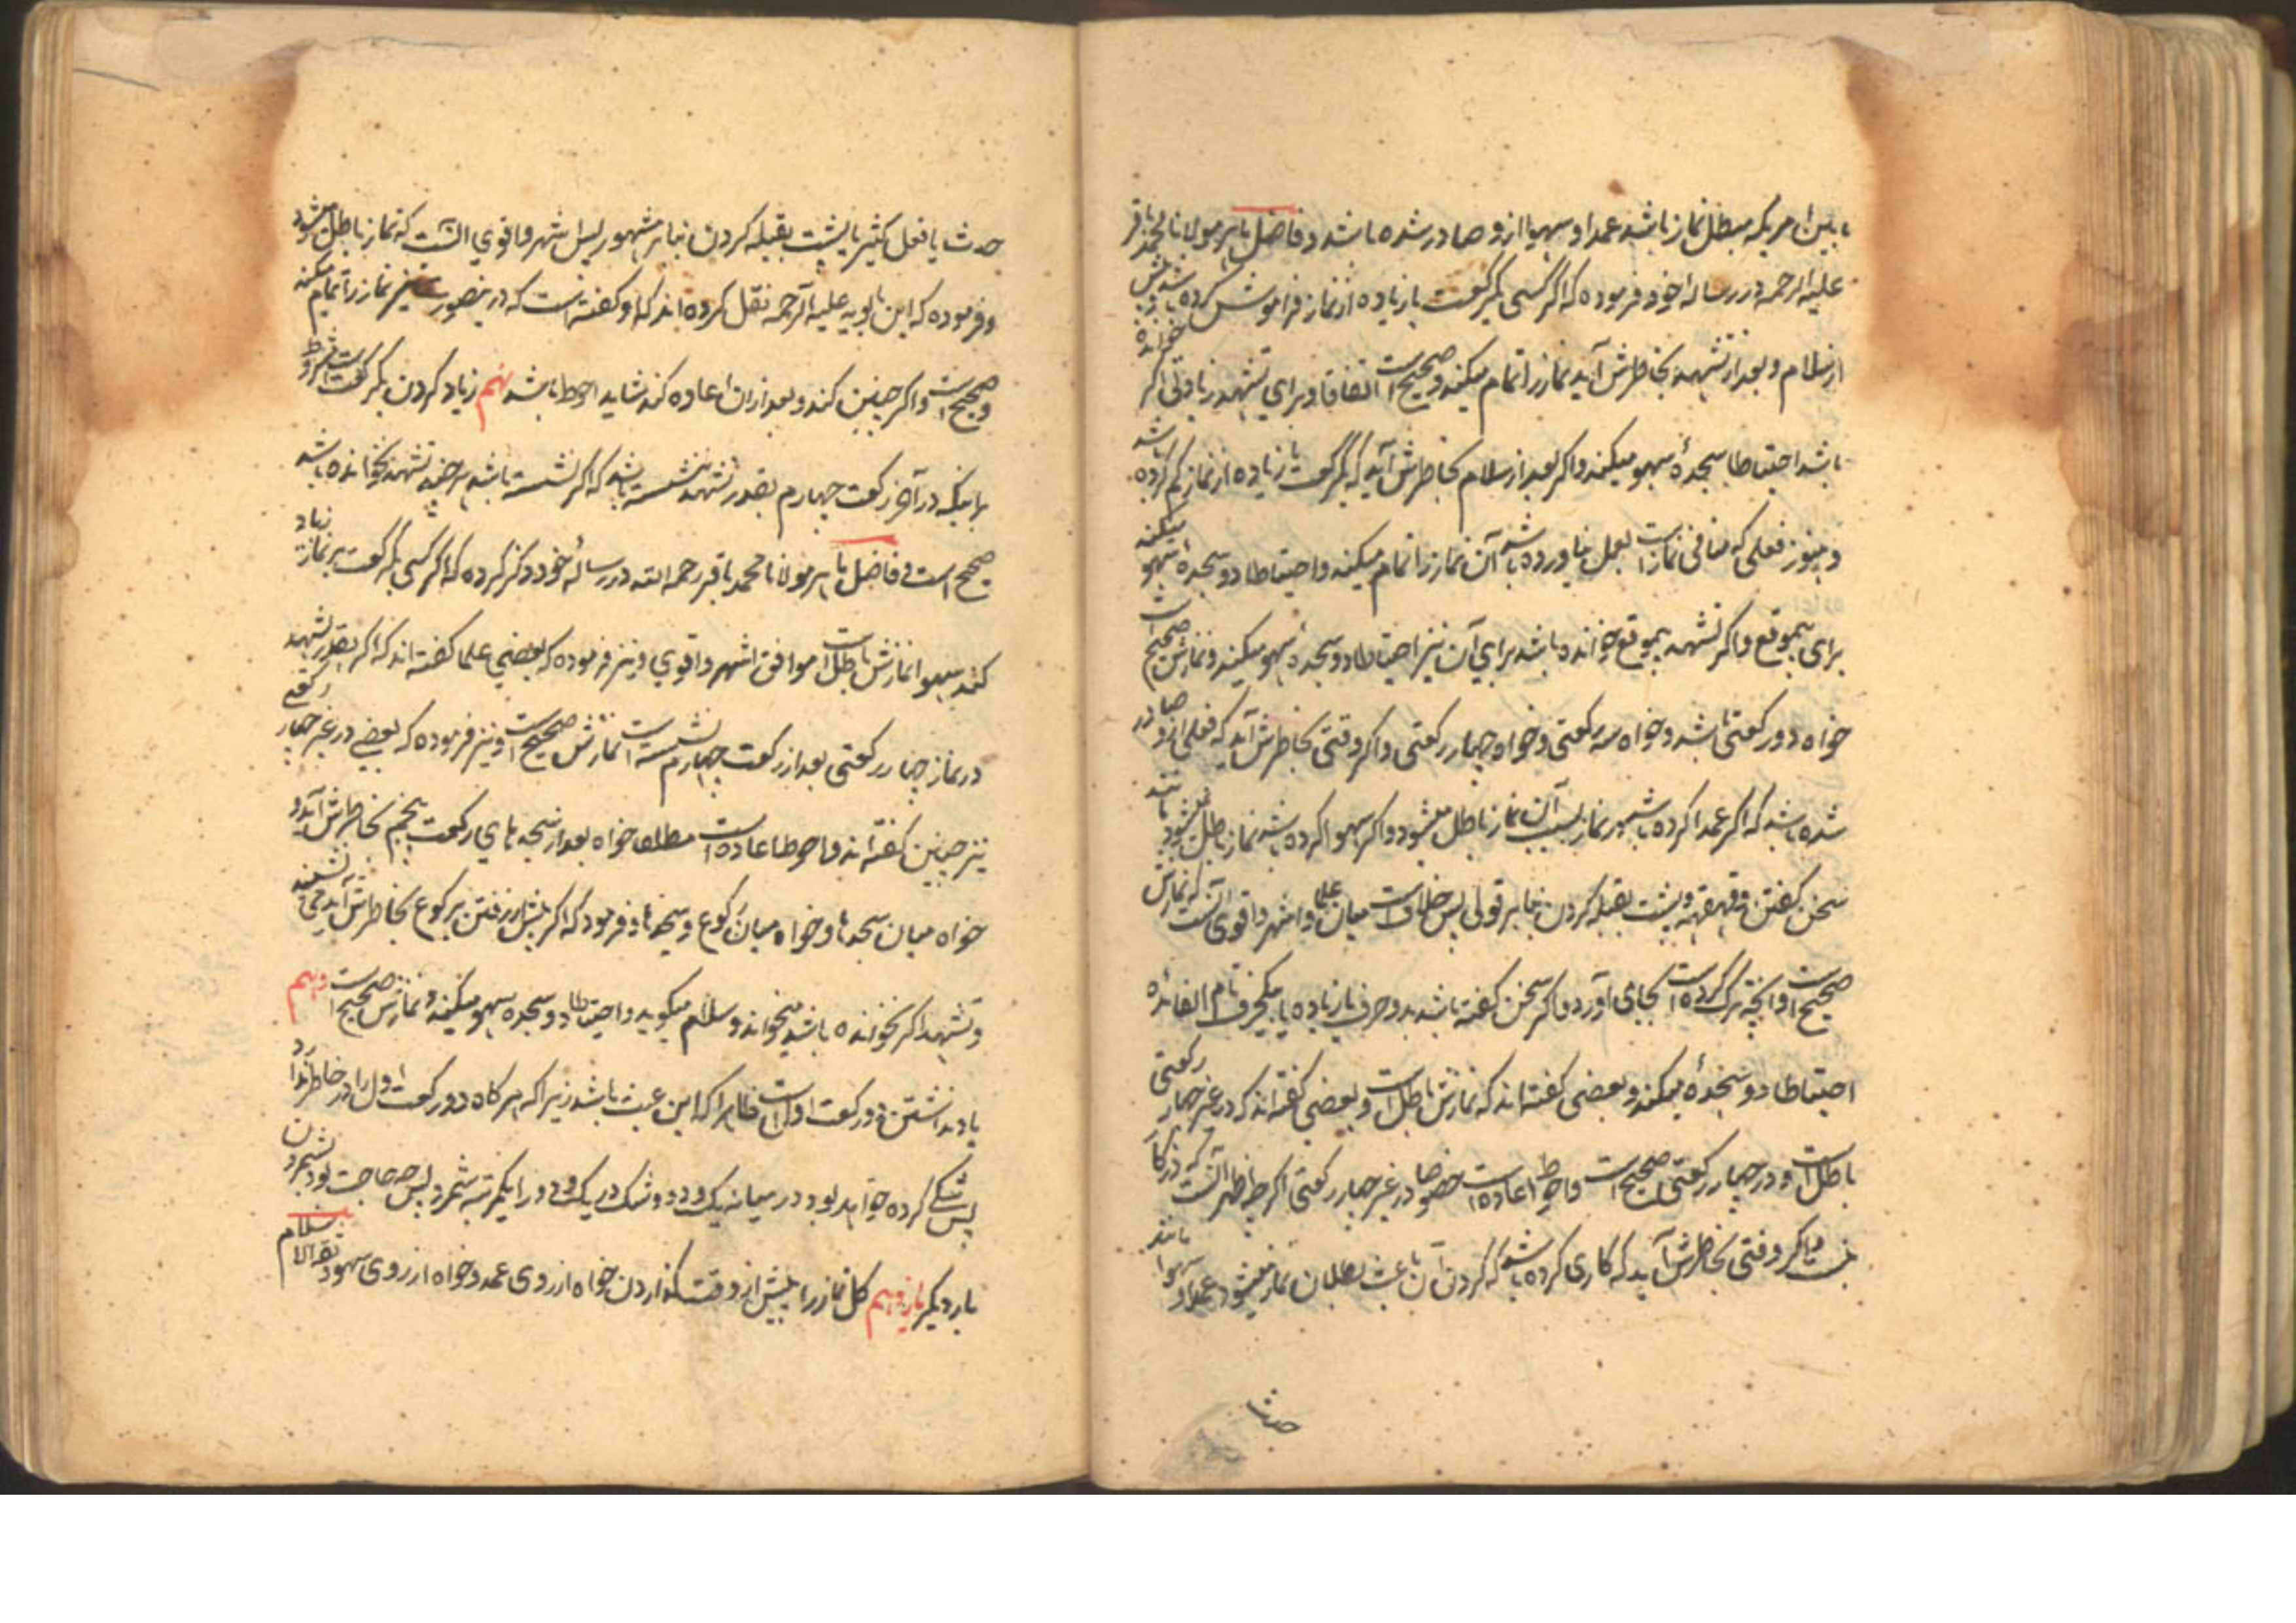 مابین امریکه مبطل نماز باشد عمدا و سهیا ازو صادر شده باشد و فاضل ماهر مولانا محمد باقر
علیه الرحمه در رساله خود فرموده که اکر کسی یکرکعت یا زیاده از نماز فراموش کرده باشد و پیش
از سلام و بعد از تشهد بخاطرش آید نماز را تمام میکند و صحیح است اتفاقا و برای تشهد زیادتی اکر خوانده
باشد احتیاطا سجدهٔ سهو میکند و اکر بعد از سلام بخاطرش آید که یکرکعت یا زیاده از نماز کم کرده باشد
و هنوز فعلی که منافی نماز است بعمل نیاورده باشد آن نماز را تمام میکند و احتیاطا دو سجدهٔ سهو میکند
برای بیموقع و اکر تشهد بیموقع خوانده باشد برای آن نیز احتیاطا دو سجدهٔ سهو میکند و نمازش صحیح است
خواه دو رکعتی باشد و خواه سه رکعتی و خواه چهار رکعتی و اکر وقتی بخاطرش آید که فعلی ازو صادر
شده باشد که اکر عمدا کرده باشد در نماز بسبب آن نماز باطل میشود و اکر سهوا کرده باشد نماز باطل نمیشود مانند
سخن کفتن و قهقهه و پشت بقبله کردن بنابر قولی پس خلافست میان علما و اشهر و اقوی آنست که نمازش
صحیح است و آنچه ترک کرده است بجای آورد و اکر سخن کفته باشد بدو حرف یا زیاده یا یکحرف تام الفائده
احتیاطا دو سجدهٔ میکند و بعضی کفته اند که نمازش باطل است و بعضی کفته اند که در غیر چهار رکعتی
باطل است و در چهار رکعتی صحیح است و احوط اعاده است خصوصا در غیر چهار رکعتی اکرچه اظهر آنست که در کار
نیست و اکر وقتی بخاطرش آید که کاری کرده باشد که کردن آن باعث بطلان نماز میشود عمدا و سهوا مانند
حدث
حدث یا فعل کثیر یا پشت بقبله کردن بنابر مشهور پس اشهر و اقوی آنست که نماز باطل میشود
و فرموده که ابن بابویه علیه الرحمه نقل کرده اند که او کفته است که درینصورت نیز نماز را تمام میکند
و صحیح است و اکر چنین کند و بعد از آن اعاده کند شاید احوط باشد نهم زیاد کردن یکرکعت است بشرط
باینکه در آخر رکعت چهارم بقدر تشهد ننشسته باشد که اکر نشسته باشد هرچند تشهد نخوانده باشد
صحیح است و فاضل ماهر مولانا محمد باقر رحمه الله در رسالهٔ خود ذکر کرده که اکر کسی یکرکعت بر نماز زیاد
کند سهوا نمازش باطل است موافق اشهر و اقوی و نیز فرموده که بعضی علما کفته اند که اکر بقدر تشهد
در نماز چهار رکعتی بعد از رکعت چهارم نشسته است نمازش صحیح است و نیز فرموده که بعضی در غیر چهار رکعتی
نیز چنین کفته اند و احوط اعاده است مطلقا خواه بعد از سجدهای رکعت پنجم بخاطرش آید و
خواه میان سجدها و خواه میان رکوع و سجدها و فرمود که اکر پیش از رفتن برکوع بخاطرش آید می نشیند
و تشهد اکر نخوانده باشد میخواند و سلام میکوید و احتیاطا دو سجدهٔ سهو میکند و نمازش صحیح است دهم
یاد نداشتن دو رکعت اول است ظاهرا که این عبث باشد زیرا که هرکاه دو رکعت اول را در خاطر ندارد
پس شکی کرده خواهد بود در میانه یک و دو و شک در یک و دو را یکمرتبه شمرد پس چه حاجت بود بشمردن
بار دیکر یازدهم کل نماز را پیش از وقت کذاردن خواه از روی عمد و خواه از روی سهو و ثقة الاسلام